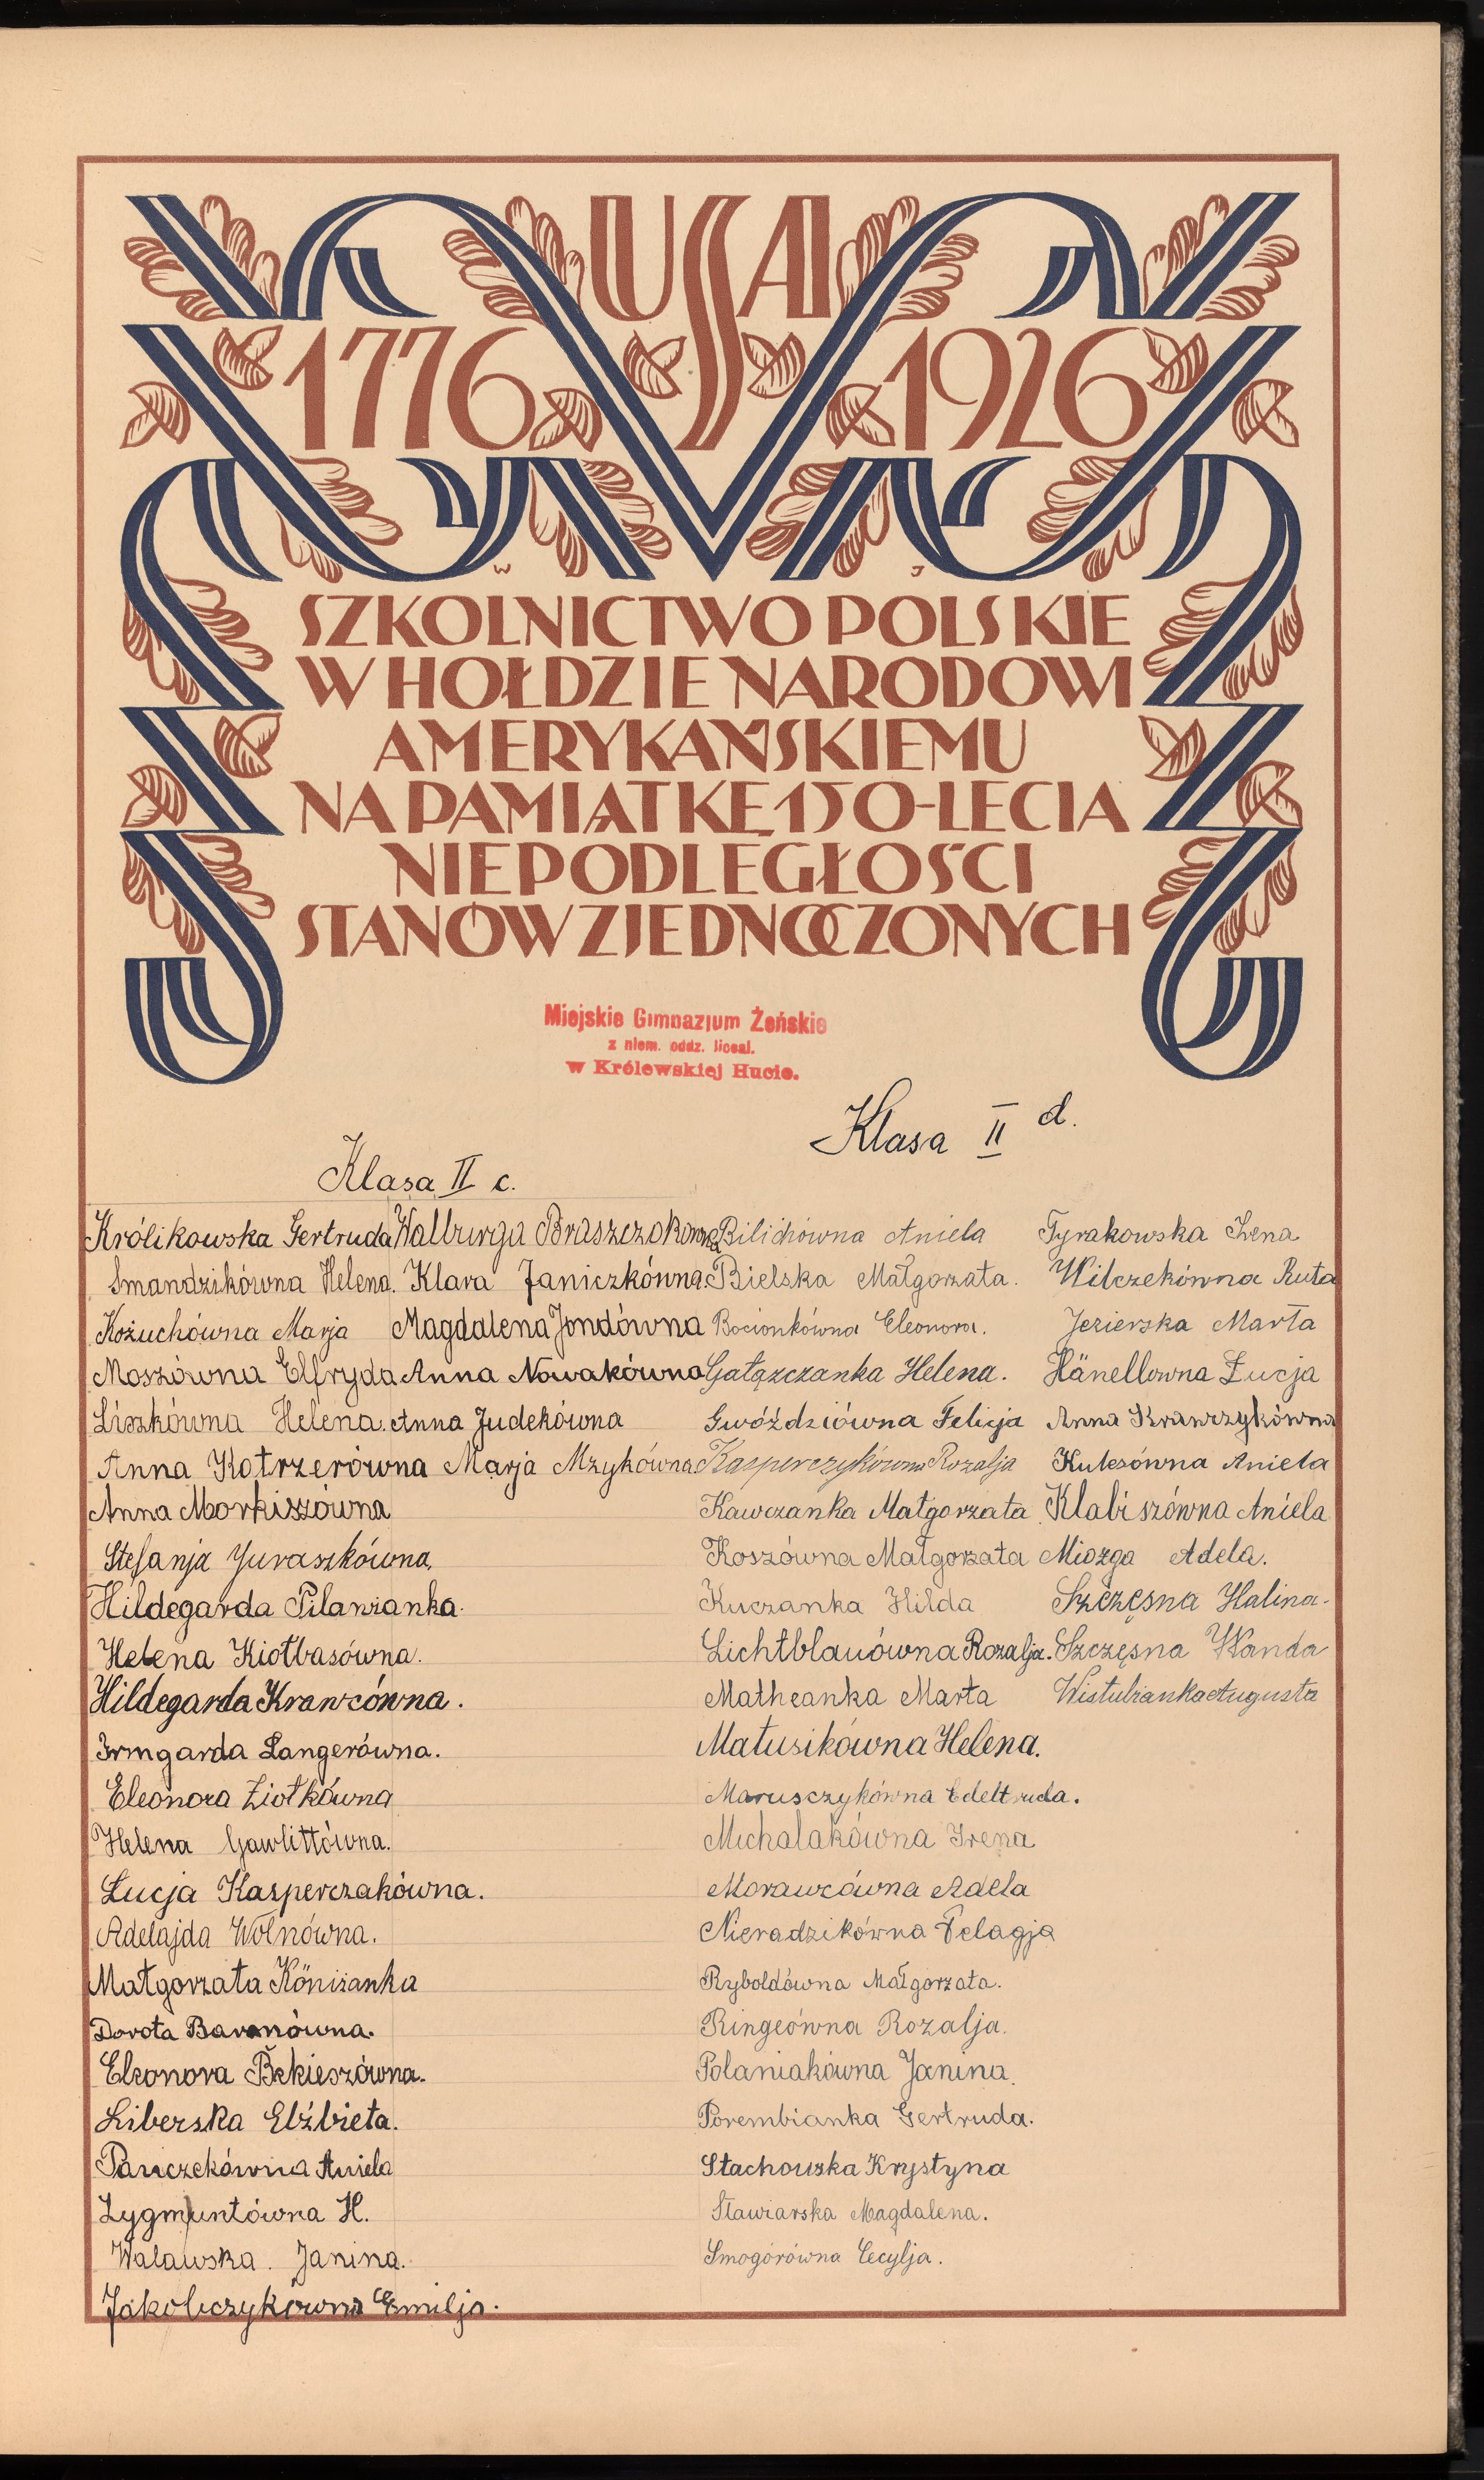 USA
1776 1926
W J
SZKOLNICTWO POLSKIE
W HOŁDZIE NARODOWI
AMERYKAŃSKIEMU
NA PAMIĄTKĘ 150-LECIA
NIEPODLEGŁOŚCI
STANÓW ZJEDNOCZONYCH
Miejskie Gimnazjum Żeńskie
z niem. oddz. liceal.
w Królewskiej Hucie.
Klasa II c.
Królikowska Gertruda
Smandzikówna Helena.
Kożuchówna Marja
Moszówna Elfryda
Liszkówna Helena.
Anna Kotrzerówna
Anna Morkiszówna
Stefanja Juraszkówna.
Hildegarda Pilawianka.
Helena Kiołbasówna.
Hildegarda Krawcówna.
Irmgarda Langerówna.
Eleonora Ziołkówna
Helena Gawlittówna.
Łucja Kasperczakówna.
Adelajda Wolnówna.
Małgorzata Köniżanka
Dorota Baronówna.
Eleonora Bekieszówna.
Liberska Elżbieta.
Panczekówna Aniela
Zygmuntówna H.
Walawska. Janina.
Jakobczykówna Emilja.
Walburga Braszczokówna
Klara Janiczkówna
Magdalena Jondówna
Anna Nowakówna
Anna Judekówna
Marja Mzykówna
Klasa II d.
Bilichówna Aniela
Bielska Małgorzata.
Bocionkówna Eleonora.
Gałązczanka Helena.
Gwóździówna Felicja
Kasperczykówna Rozalja
Kawczanka Małgorzata
Koszówna Małgorzata
Kuczanka Hilda
Lichtblauówna Rozalja.
Matheanka Marta
Matusikówna Helena.
Marusczykówna Edeltruda.
Michalakówna Irena
Morawcówna Adela
Nieradzikówna Pelagja
Ryboldówna Małgorzata.
Ringeówna Rozalja.
Polaniakówna Janina.
Porembianka Gertruda.
Stachowska Krystyna
Stawiarska Magdalena.
Smogorówna Cecylja.
Tyrakowska Irena
Wilczekówna Ruta
Jezierska Marta
Hänellowna Łucja
Anna Krawczykówna
Kulesówna Aniela
Klabiszówna Aniela
Miozga Adela.
Szczęsna Halina.
Szczęsna Wanda
Wistubianka Augusta